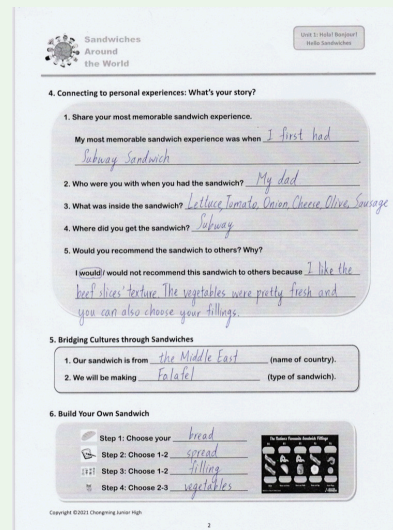 Sandwiches
Around
the World
Unit 1: Hola! Bonjour!
Hello Sandwiches
4. Connecting to personal experiences: What's your story?
1. Share your most memorable sandwich experience.
My most memorable sandwich experience was when I first had
Subway Sandwich.
2. Who were you with when you had the sandwich? My dad
3. What was inside the sandwich? Lettuce, Tomato, Onion, Cheese, Olive, Sausage
4. Where did you get the sandwich? Subway
5. Would you recommend the sandwich to others? Why?
I would / would not recommend this sandwich to others because I like the
beef slices' texture. The vegetables were pretty fresh and
you can also choose your fillings.
5. Bridging Cultures through Sandwiches
1. Our sandwich is from the Middle East (name of country).
2. We will be making Falafel (type of sandwich).
6. Build Your Own Sandwich
Step 1: Choose your bread
Step 2: Choose 1-2 spread
Step 3: Choose 1-2 filling
Step 4: Choose 2-3 vegetables
Copyright ©2021 Chongming Junior High
2